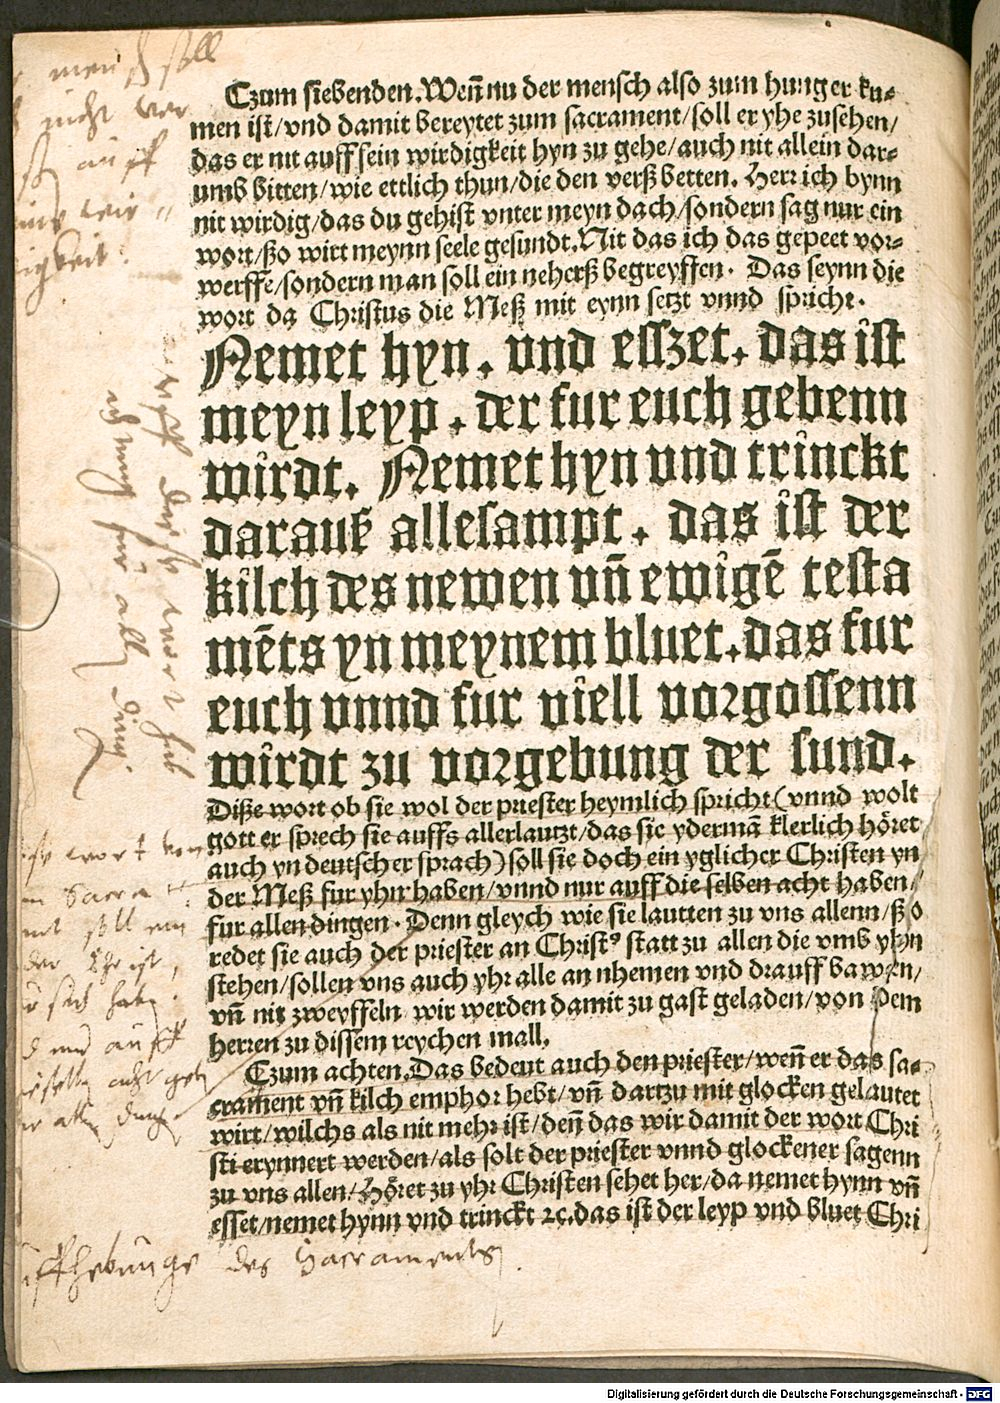 mensch soll
nicht ver
auff
wir-
igkeit.
Czum siebenden. Wen̄ nu der mensch also zum hunger ku⸗
men ist/vnd damit bereytet zum sacrament/soll er yhe zusehen/
das er nit auff sein wirdigkeit hyn zu gehe/auch nit allein dar⸗
umb bitten/wie ettlich thun/die den verß betten. Herr ich bynn
nit wirdig/das du gehist vnter meyn dach/sondern sag nur ein
wort/ßo wirt meynn seele gesundt. Nit das ich das gepeet vor⸗
werffe/sondern man soll ein neherß begreyffen. Das seynn die
wort da Christus die Meß mit eynn setzt vnnd spricht.
Nemet hyn. vnd esszet. das ist
meyn leyp. der fur euch gebenn
wirdt. Nemet hyn vnd trinckt
darauß allesampt. das ist der
kilch des newen vn̄ ewigē testa
mēts yn meynem bluet. das fur
euch vnnd fur viell vorgossenn
wirdt zu vorgebung der sund.
auff dise wort hab
achtung fur alln ding.
Diße wort ob sie wol der priester heymlich spricht (vnnd wolt
gott er sprech sie auffs allerlautzt/das sie ydermā klerlich höret
auch yn deutscher sprach) soll sie doch ein yglicher Christen yn
der Meß fur yhn haben/vnnd nur auff die selben acht haben/
fur allen dingen. Denn gleych wie sie lautten zu vns allenn/ßo
redet sie auch der priester an Christꝰ statt zu allen die vmb yhn
stehen/sollen vns auch yhr alle an nhemen vnd drauff bawen/
vn̄ nit zweyffeln wir werden damit zu gast geladen/von dem
herren zu dissem reychen mall.
wort
Sacra
soll ein
der Christ
sich haben.
auff
acht geb
alln dingen
Czum achten. Das bedeut auch den priester/wen̄ er das sa⸗
crament vn̄ kilch emphor hebt/vn̄ dartzu mit glocken gelautet
wirt/wilchs als nit mehr ist/den̄ das wir damit der wort Chri
sti erynnert werden/als solt der priester vnnd glockener sagenn
zu vns allen/Höret zu yhr Christen sehet her/da nemet hynn vn̄
esset/nemet hynn vnd trinckt ꝛc. das ist der leyp vnd bluet Chri
uffhebunge des Sacraments.
Digitalisierung gefördert durch die Deutsche Forschungsgemeinschaft - DFG